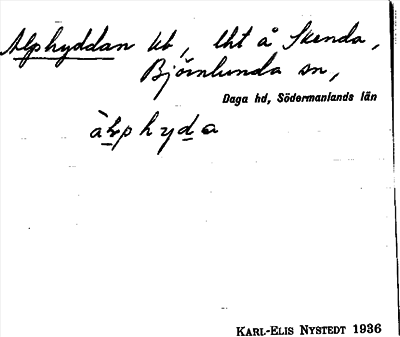 Alphyddan lht, lht å Skenda,
Björnlunda sn,
Daga hd, Södermanlands län
àlphyda
KARL-ELIS NYSTEDT 1936